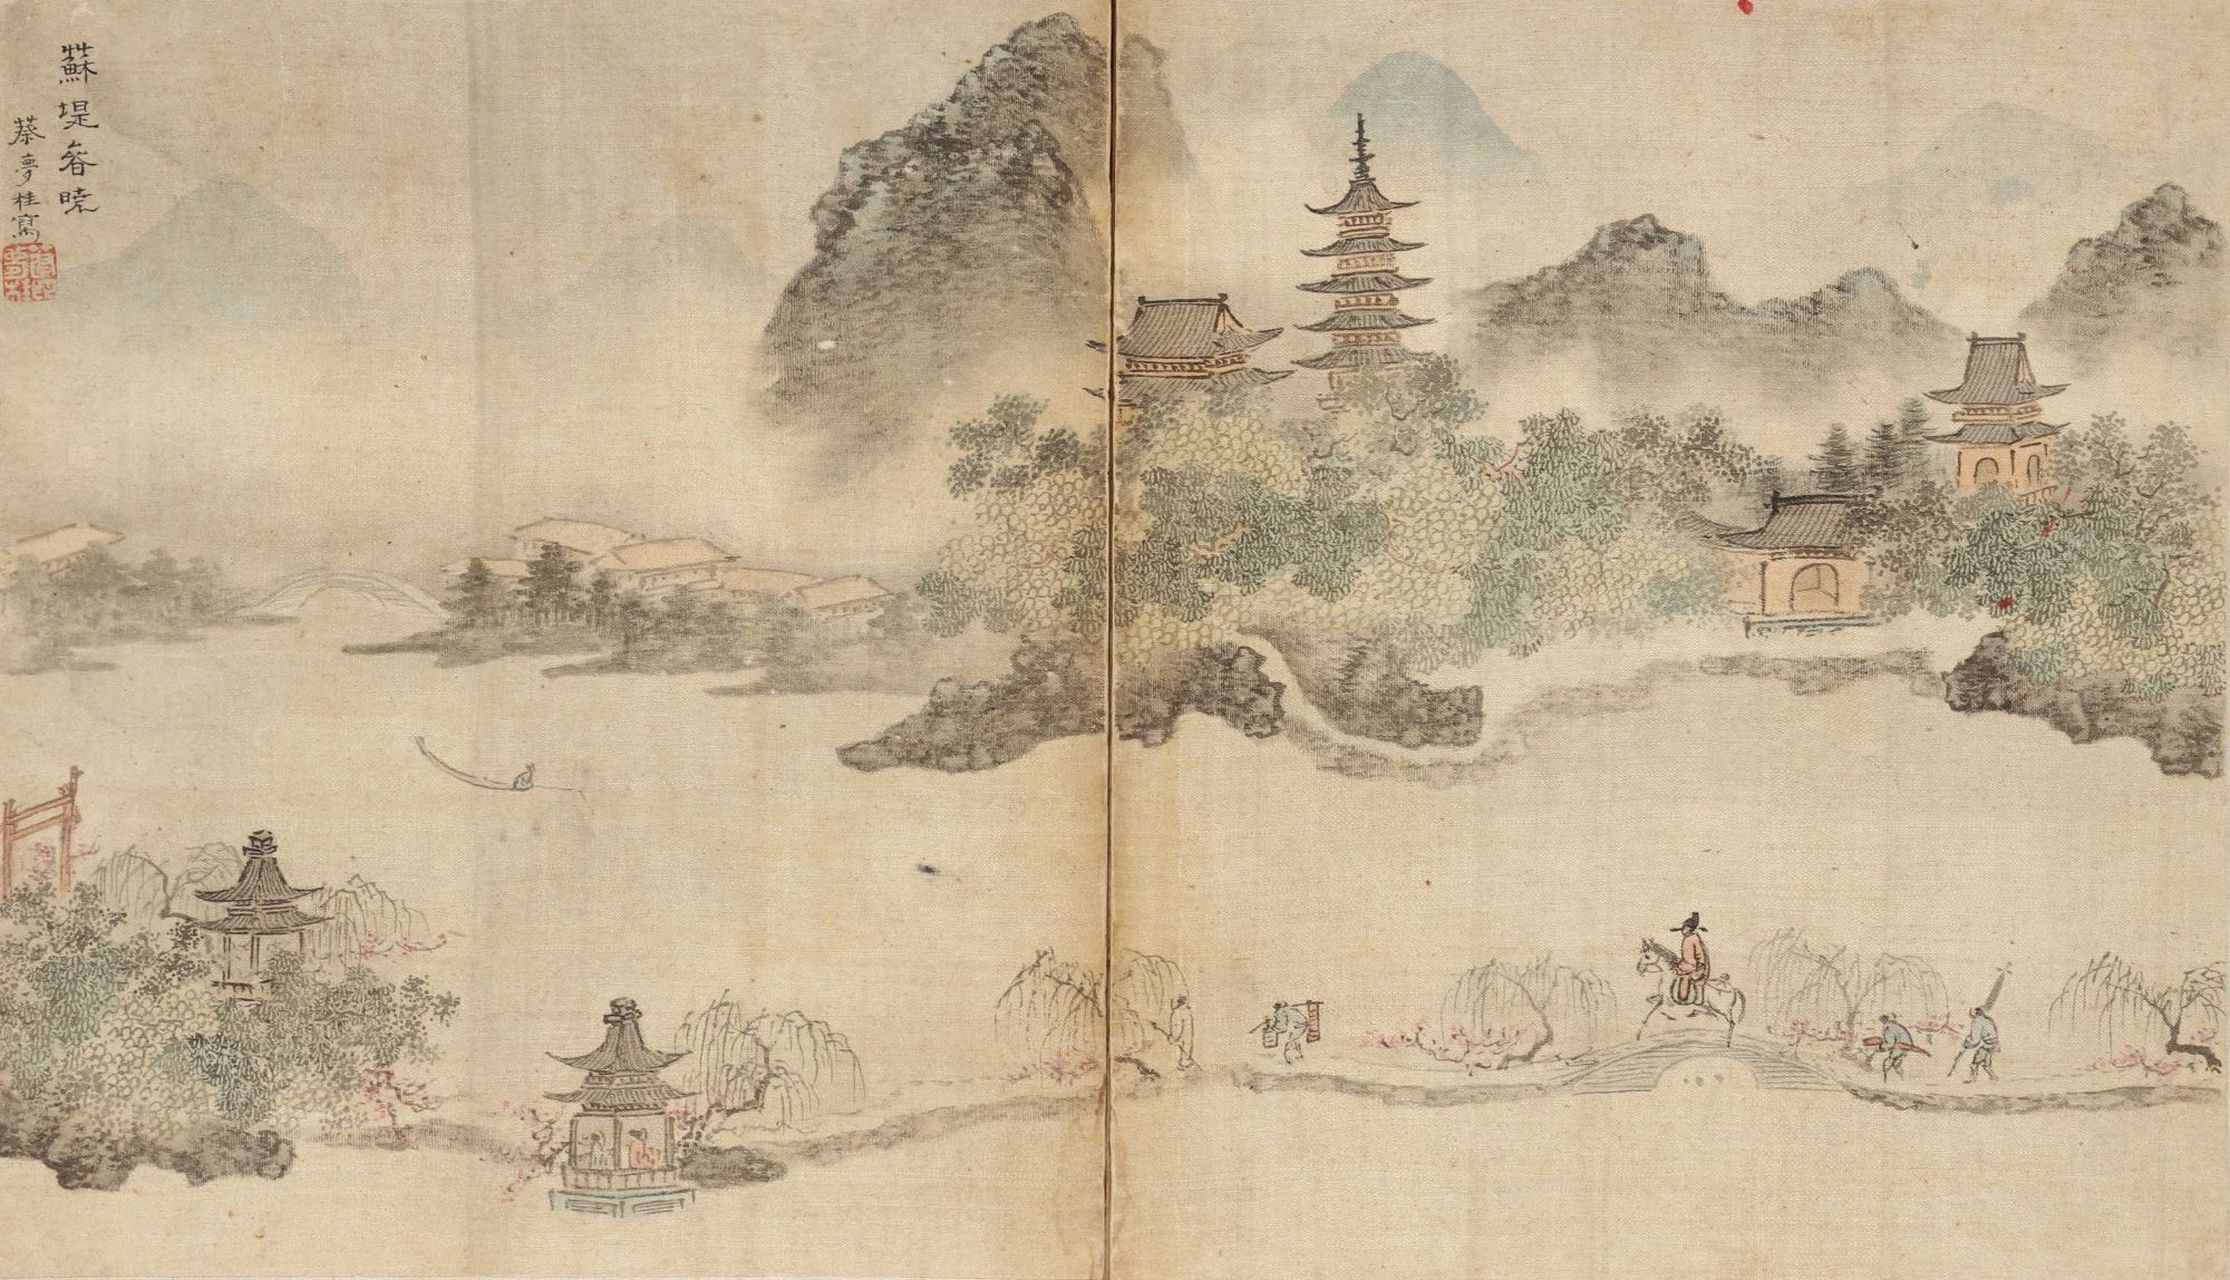 蘇堤春曉
蔡夢桂寫